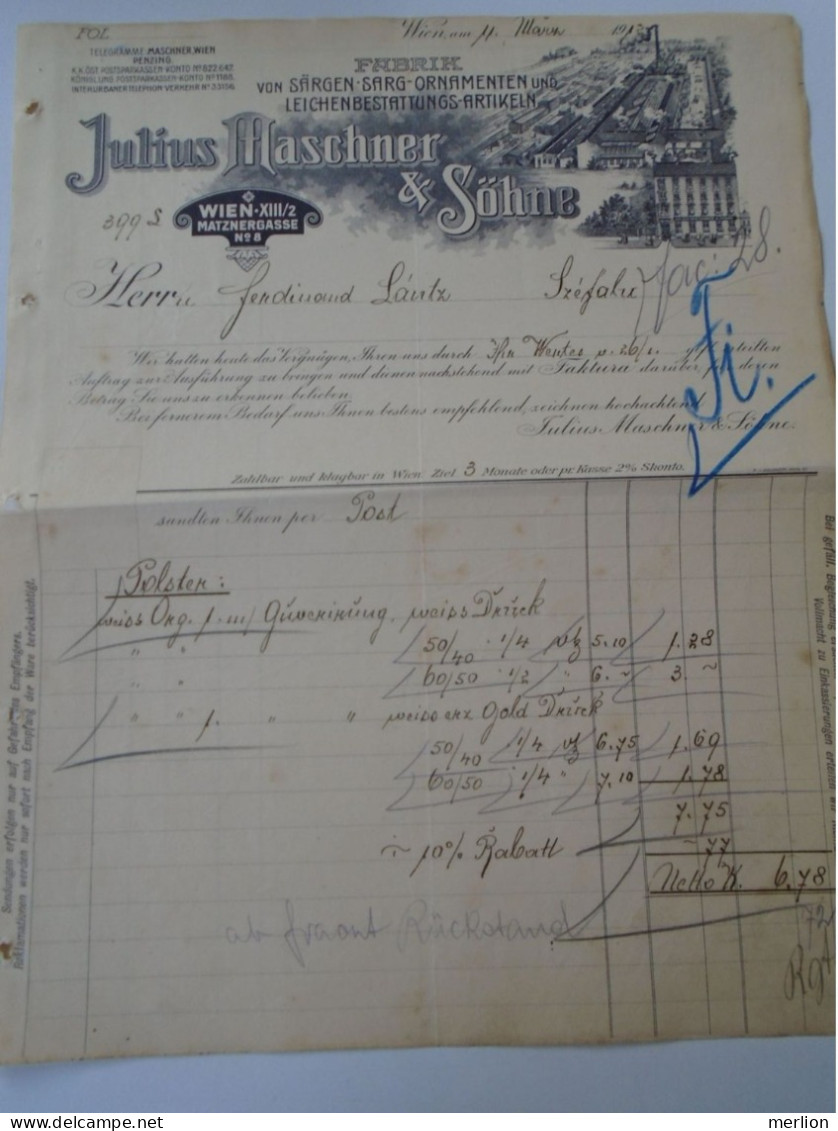 FOL
Wien, am 4. März 191
TELEGRAMME: MASCHNER, WIEN
PENZING.
K.K.ÖST. POSTSPARKASSEN KONTO Nº 822.647.
KÖNIGL. UNG. POSTSPARKASSEN-KONTO Nº 1188.
INTERURBANER TELEPHON-VERKEHR Nº 33156
FABRIK
VON SÄRGEN-SARG-ORNAMENTEN UND
LEICHENBESTATTUNGS-ARTIKELN
Julius Maschner
& Söhne
WIEN-XIII/2
MATZNERGASSE
Nº 8
399 S
Herrn Ferdinand Lántz Széfalu
28.
Wir hatten heute das Vergnügen, Ihren uns durch p. 26/1. erteilten
Auftrag zur Ausführung zu bringen und dienen nachstehend mit Faktura darüber, für deren
Betrag Sie uns zu erkennen belieben.
Bei fernerem Bedarf uns Ihnen bestens empfehlend, zeichnen hochachtend
Julius Maschner & Söhne.
Zahlbar und klagbar in Wien. Ziel 3 Monate oder pr. Kasse 2% Skonto.
sandten Ihnen per Post
Polster:
weiss Org. 1. m/ weiss Druck
50/40 1/4 5.10 1.28
" " 60/50 1/2 " 6.~ 3.~
" " 1. " " weiss Gold Druck
50/40 1/4 6.75 1.69
60/50 1/4 " 7.10 1.78
7.75
÷ 10% Rabatt ~ 77
Netto K. 6.78
72
ab Rückstand
Sendungen erfolgen nur auf Gefahr des Empfängers.
Reklamationen werden nur sofort nach Empfang der Ware berücksichtigt.
Bei gefäll.
Vollmacht zu Einkassierungen
merlion